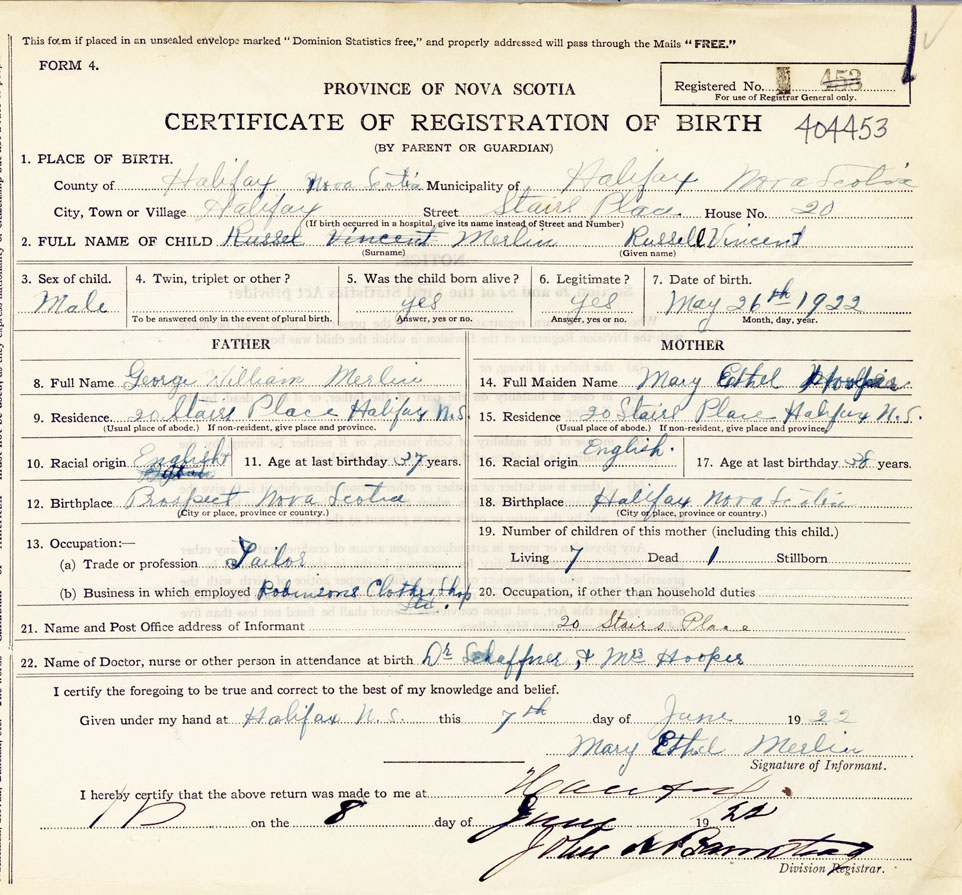 This form if placed in an unsealed envelope marked "Dominion Statistics free," and properly addressed will pass through the Mails "FREE."
FORM 4.
Registered No. 453
For use of Registrar General only.
PROVINCE OF NOVA SCOTIA
CERTIFICATE OF REGISTRATION OF BIRTH 404453
(BY PARENT OR GUARDIAN)
1. PLACE OF BIRTH.
County of Halifax Nova Scotia Municipality of Halifax Nova Scotia
City, Town or Village Halifax Street Stairs Place House No. 20
(If birth occurred in a hospital, give its name instead of Street and Number)
2. FULL NAME OF CHILD Russel Vincent Merlin Russell Vincent
(Surname) (Given name)
3. Sex of child. 4. Twin, triplet or other? 5. Was the child born alive? 6. Legitimate? 7. Date of birth.
Male yes yes May 26th 1922
To be answered only in the event of plural birth. Answer, yes or no. Answer, yes or no. Month, day, year.
FATHER MOTHER
8. Full Name George William Merlin 14. Full Maiden Name Mary Ethel
9. Residence. 20 Stairs Place Halifax N.S. 15. Residence 20 Stairs Place Halifax N.S.
(Usual place of abode.) If non-resident, give place and province. (Usual place of abode.) If non-resident, give place and province.
10. Racial origin English 11. Age at last birthday 37 years. 16. Racial origin English. 17. Age at last birthday 38 years.
12. Birthplace Prospect Nova Scotia 18. Birthplace Halifax Nova Scotia
(City or place, province or country.) (City or place, province or country.)
13. Occupation:— 19. Number of children of this mother (including this child.)
(a) Trade or profession Tailor Living 7 Dead 1 Stillborn
(b) Business in which employed Robinsons Clothes Shop Ltd. 20. Occupation, if other than household duties
21. Name and Post Office address of Informant 20 Stairs Place
22. Name of Doctor, nurse or other person in attendance at birth Dr Schaffner & Mrs Hooper
I certify the foregoing to be true and correct to the best of my knowledge and belief.
Given under my hand at Halifax N.S. this 7th day of June 1922
Mary Ethel Merlin
Signature of Informant.
I hereby certify that the above return was made to me at
on the 8 day of June 1922
John
Division Registrar.